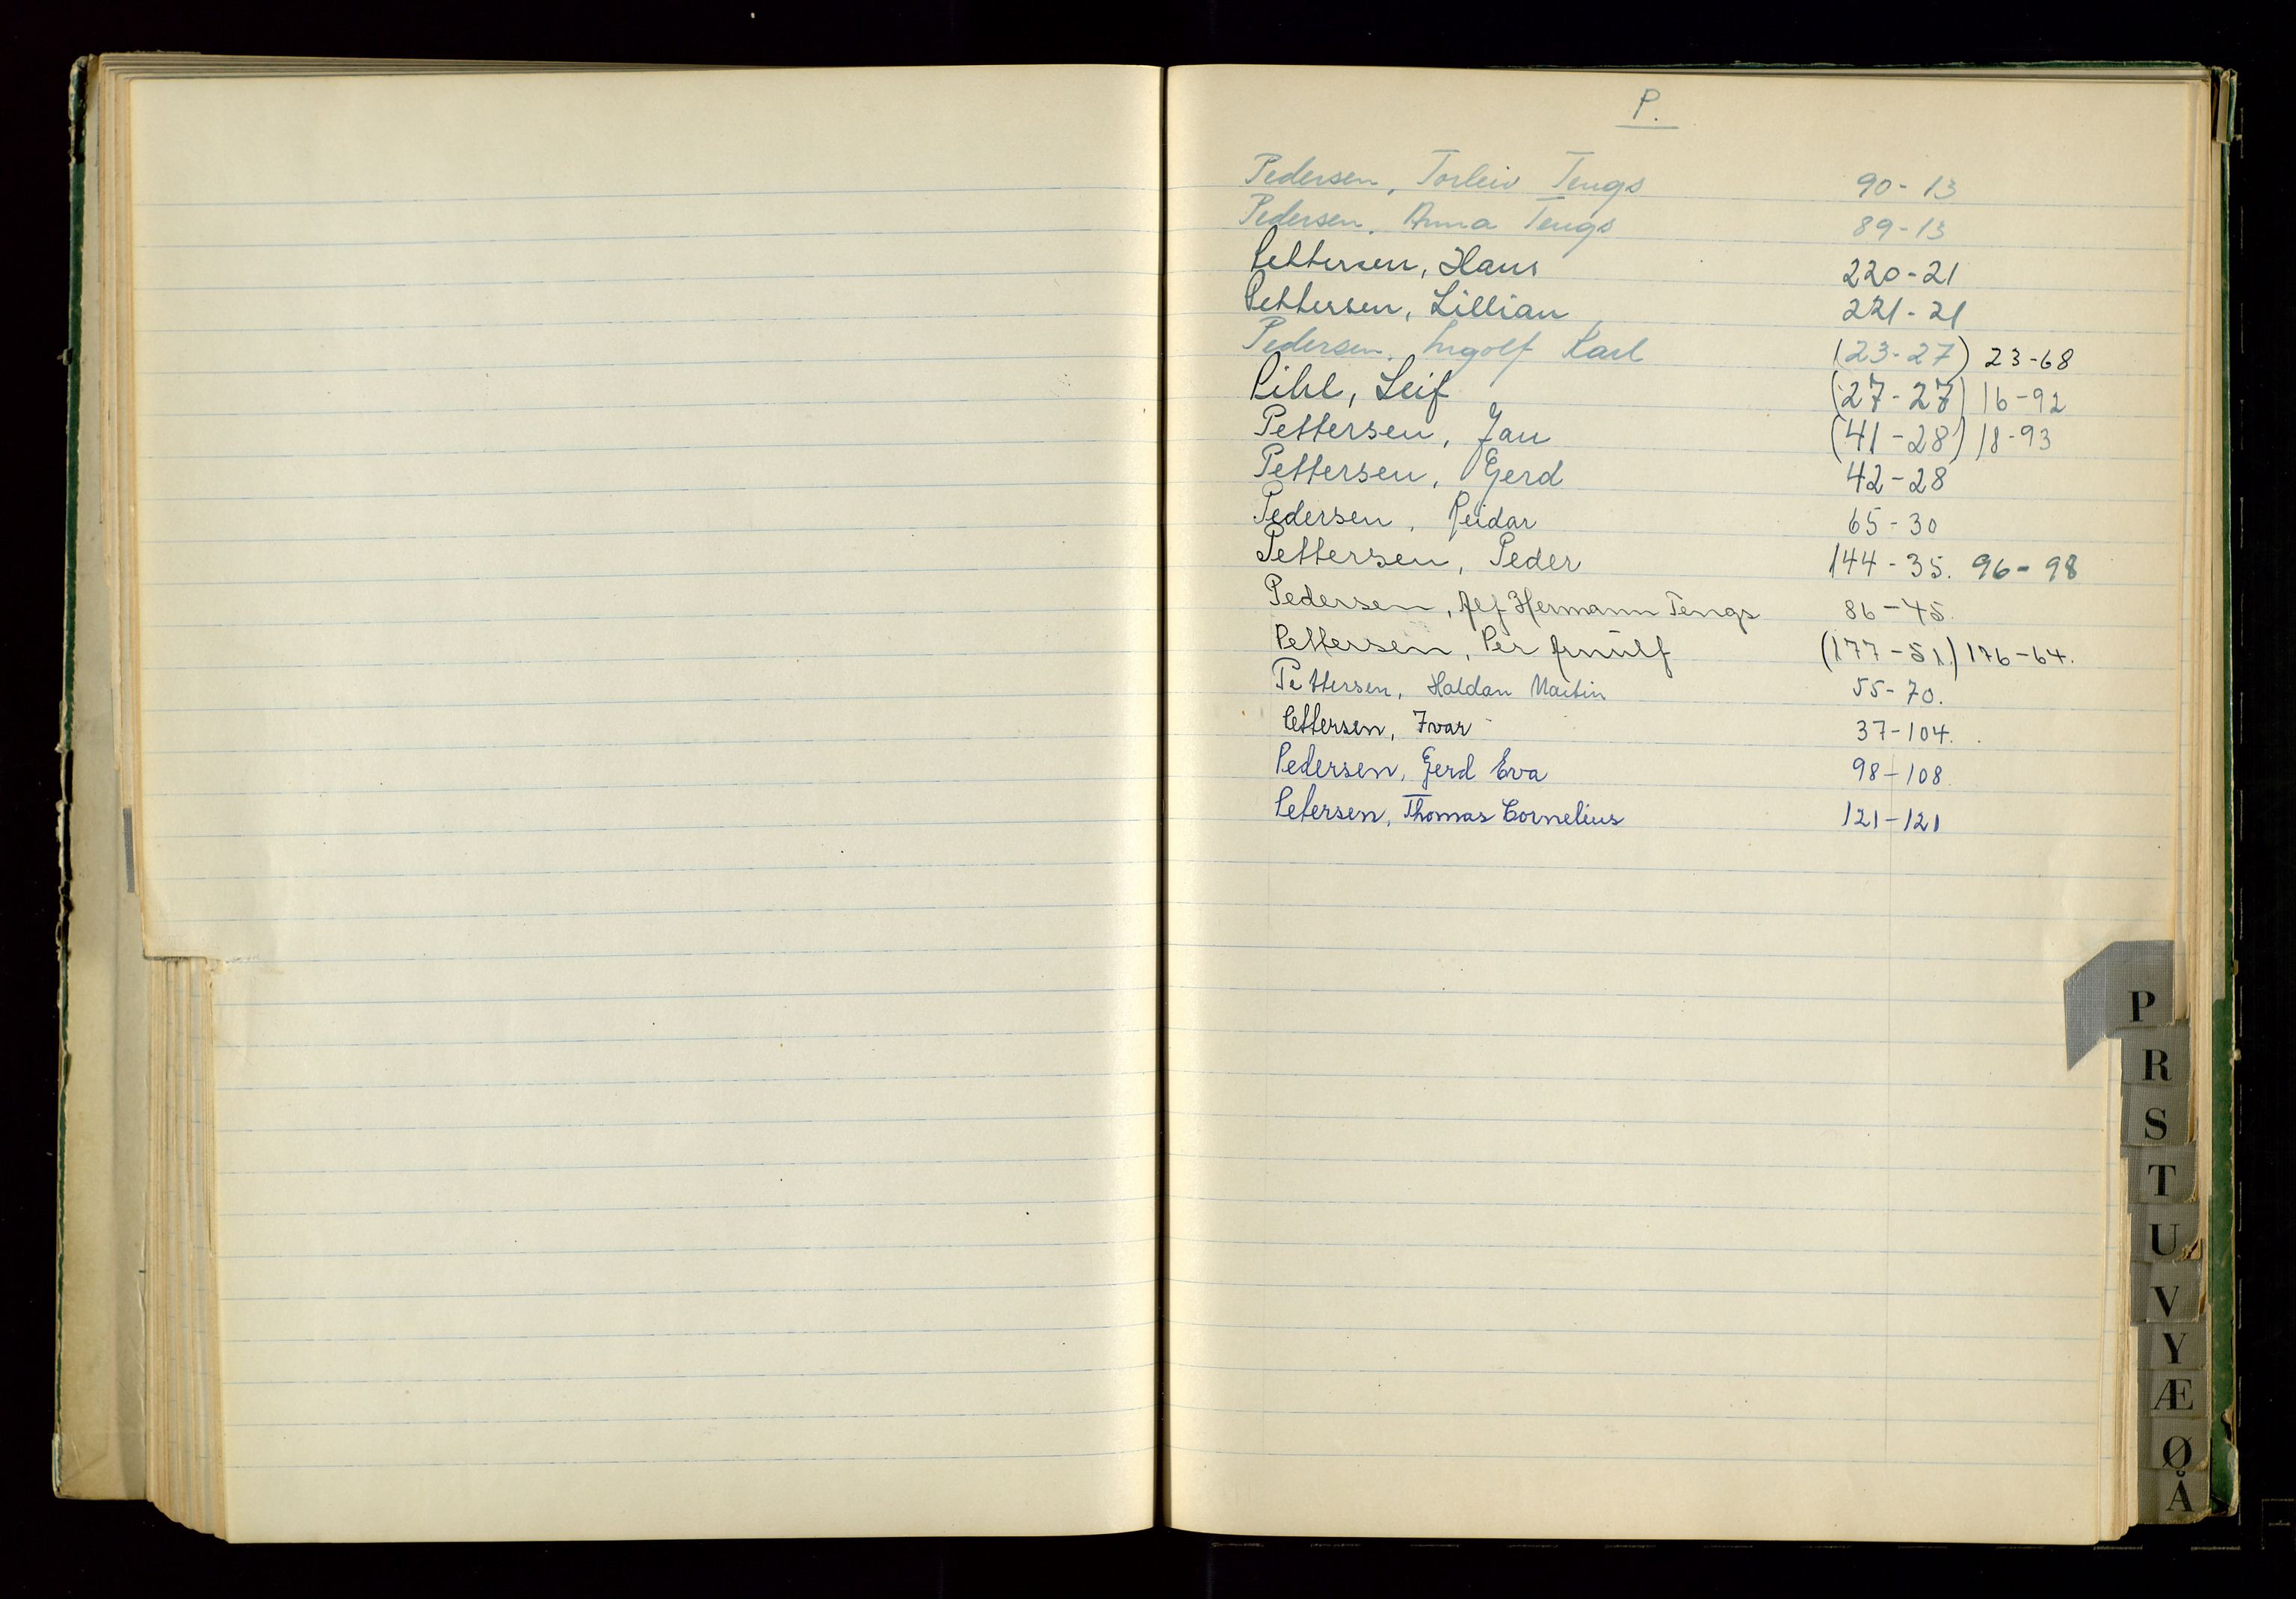 P.
Pedersen, Torleiv Tengs 90-13
Pedersen, Anna Tengs 89-13
Pettersen, Hans 220-21
Pettersen, Lillian 221-21
Pedersen, Ingolf Karl (23-27) 23-68
Pihl, Leif (27-27) 16-92
Pettersen, Jan (41-28) 18-93
Pettersen, Gerd 42-28
Pedersen, Reidar 65-30
Pettersen, Peder 144-35. 96-98
Pedersen, Alf Hermann Tengs 86-45.
Pettersen, Per Arnulf (177-51) 176-64.
Pettersen, Haldan Martin 55-70.
Pettersen, Ivar 37-104.
Pedersen, Gerd Eva 98-108.
Petersen, Thomas Cornelius 121-121
P
R
S
T
U
V
Y
Æ
Ø
Å